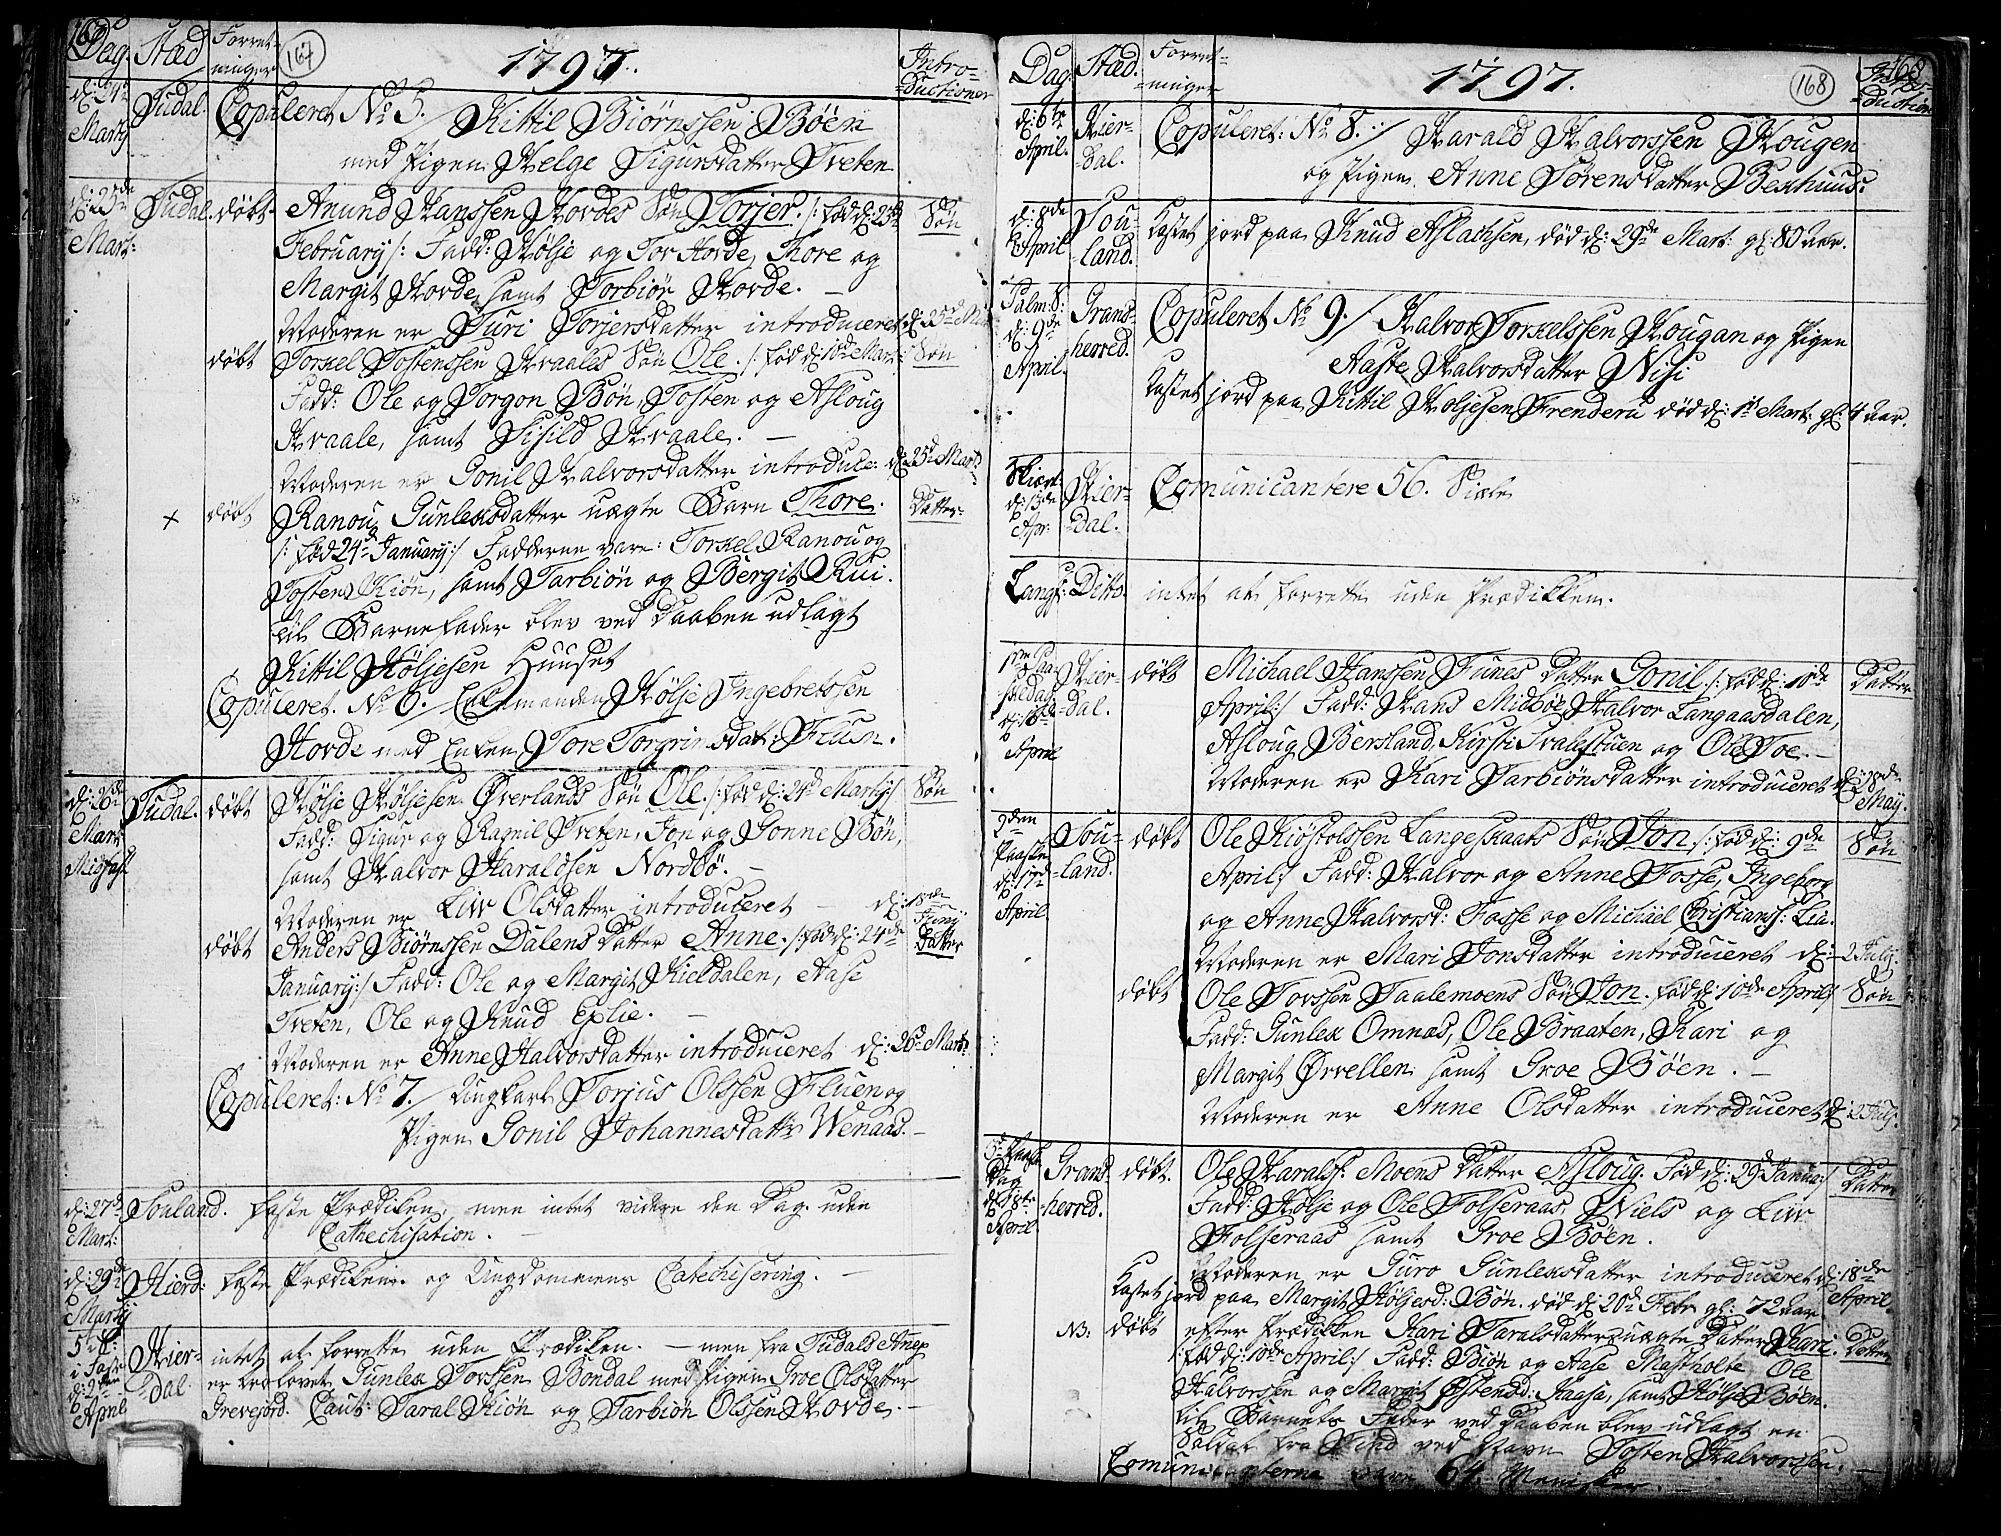 Dag. Stæd Forret-
ninger
167
1797.
Intro-
ductioner
d: 24de
Martj
Tudal.
Copuleret No 5. / Kittil Biørnssen Bøen
med Pigen Helge Sigursdatter Tveten
d: 25de
Mart:
Tudal.
døbt
Anund Hanssen Hovdes Søn Torjer. /: fød d: 23de
Søn
February :/ Fadd: Hølje og Tor Hovde, Thore og
Margit Hovde, samt Torbiør Hovde. —
Moderen er Turi Torjersdatter introduceret d: 25de Mart
døbt
Torkel Tostenssen Hvaales Søn Ole. /: fød d: 10de Mart:
Søn
Fadd: Ole og Jorgon Bøn, Tosten og Asloug
Hvaale, samt Sisild Hvaale. —
Moderen er Gonil Halvorsdatter introduce: d: 25de Mart:
døbt
Ranou Gunleksdatter uægte Barn Thore.
Datter
/: fød 24de January :/ Fadderne vare: Torkel Ranou og
Tosten Kiøn, samt Tarbiøn og Bergit Rui.
til Barnefader blev ved Daaben udlagt
Kittil Høljesen Huuset
Copuleret. No 6. / Enkemanden Hølje Ingebretssen
Hovde med Enken Tore Torgrimsdatt:
d: 26de
Mart:
Midfast
Tudal.
døbt
Hølje Høljesen Øverlands Søn Ole. /: fød d: 24de Martij :/
Søn
Fadd: Sigur og Ramil Tveten, Jon og Gonne Bøn,
samt Halvor Haraldsen Nordbø. —
Moderen er Liv Olsdatter introduceret — d:
Junij
døbt
Anders Biørnssen Dalens Datter Anne. /: fød d: 24de
Datter
January :/ Fadd: Ole og Margit Kieldalen, Aase
Tveten, Ole og Knud Eplie. —
Moderen er Anne Halvorsdatter introduceret d: 26de Mart:
Copuleret: No 7. / Ungkarl Torjus Olssen Fluen og
Pigen Gonil Johannesdattr Wenaas. —
d: 27de
Mart:
Souland.
faste Prædiken, men intet videre den Dag. uden
Cathechisation. —
d: 29de
Martj
Hierd:
faste Prædiken. og Ungdommens Catechisering. —
5 S:
i Faste
d: 2den
April
Hier-
dal.
intet at forrette uden Prædiken. — men fra Tudals Anex
er trolovet Gunlek Torssen Bondal med Pigen Groe Olsdatter
Grevejord. Caut: Taral Kiøn og Tarbiøn Olssen Hovde. —
Dag: Stæd. Forret-
ninger
1797.
168
Intro-
duction
d: 6te
April.
Hier-
dal.
Copuleret: No 8. / Harald Halvorssen Hougen
og Pigen Anne Sørensdatter Bekhuus.
d: 8de
April
Sou-
land.
Kastet jord paa Knud Aslachsen, død d: 29de Mart: gl: 80 Aar.
Palm: S:
d: 9de
April.
Grans-
herred.
Copuleret No 9. / Halvor Torkelssen Hougan og Pigen
Aaste Halvorsdatter Nisi
Kastet jord paa Kittil Høljesen Frenderu død d: 1te Mart: gl: 4 Aar.
Skiert:
d: 13de
Apr:
Hier-
dal.
Comunicantere 56. Siæle
Langf: Ditto.
intet at forrette uden Prædikken.
1te Paa-
skedag
d: 16de
April
Hier-
dal.
døbt
Michael Hanssen Funes Datter Gonil. /: fød d: 10de
Datter
April :/ Fadd: Hans Midbøe, Halvor Langaasdalen,
Asloug Bersland, Kirsti Svalestuen og Ole Toe. —
Moderen er Kari Tarbiønsdatter introduceret d: 28de
Maij.
2den
Paaske
d: 17de
April
Sou-
land.
døbt
Ole Kiøstolssen Langeskaats Søn Jon. /: fød d: 9de
Søn
April :/ Fadd: Halvor og Anne Fosse, Ingeborg
og Anne Halvorsd: Fosse og Michael Cristians: Lia.
Moderen er Mari Jonsdatter introduceret d: 2 July.
døbt
Ole Torssen Taalemoens Søn Jon. fød d: 10de April :/
Søn
Fadd: Gunlek Omnas, Ole Braaten, Kari og
Margit Ørvellen samt Groe Bøen. —
Moderen er Anne Olsdatter introduceret d: 2 July.
3de Paaske
Dag
d: 18de
April
Grans-
herred.
døbt.
Ole Haralds: Moens Datter Asloug. fød d: 29de Janua:/
Datter
Fadd: Hølje og Ole Folseraas, Niels og Liv
Folseraas samt Groe Bøen.
Moderen er Guro Gunleksdatter introduceret d: 18de
April.
Kastet jord paa Margit Høljesd: Bøn. død d: 20de Febr gl: 72 Aar
NB:
døbt
efter Prædikken Kari Taralsdatters uægte Datter Kari.
Datter
/: fød d: 10de April :/ Fadd: Biøn og Aase Mastholte Ole
Halvorssen og Margit Østensd: Haasa, samt Hølje Bøen.
til Barnets Fader ved Daaben blev udlagt en
Soldat fra Sind ved Navn Tosten Halvorssen.
Comunicanterne vare 64 Menisker. —